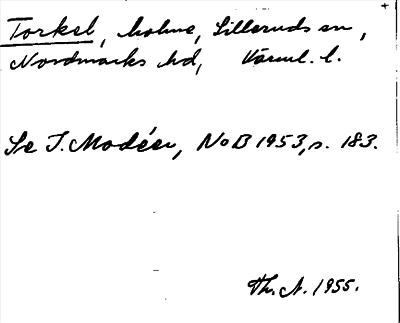 Torkel, holme, Silleruds sn,
Nordmarks hd, Värml. l.
Se I. Modéer, NoB 1953, s. 183.
Th. A. 1955.